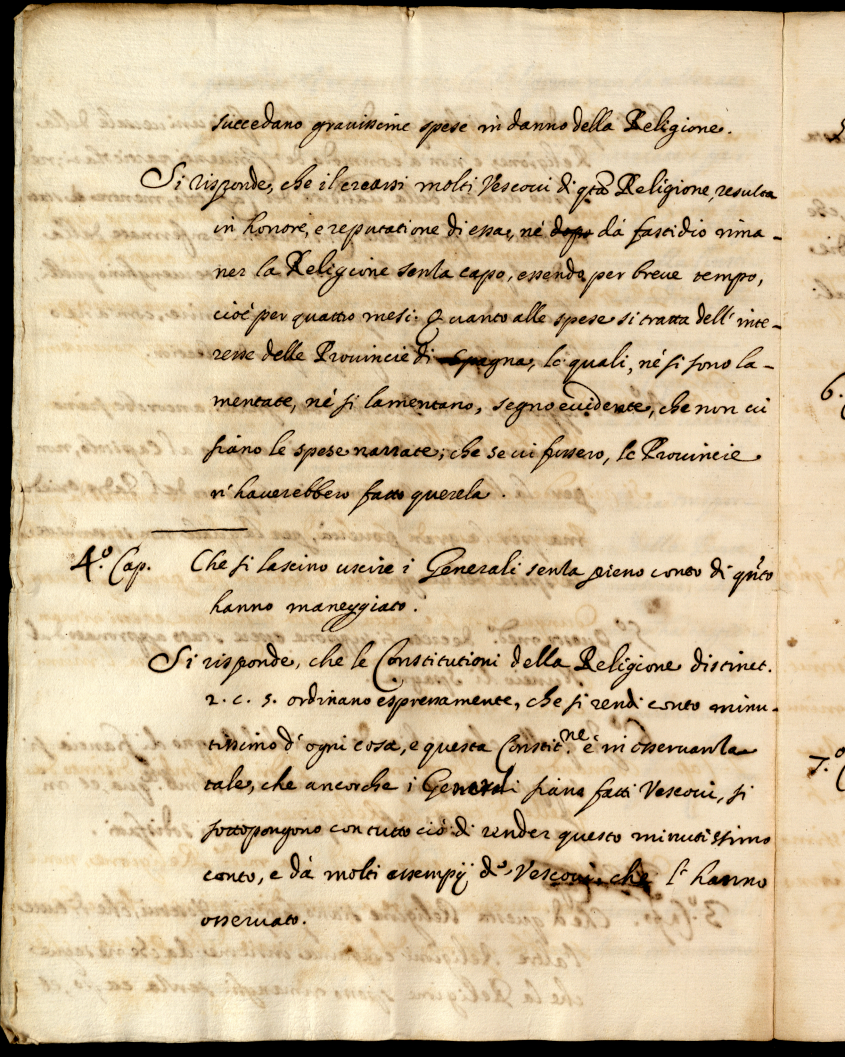 succedano grauissime spese in danno della Religione.
Si risponde, che il crearsi molti Vescoui di q.ta Religione, resulta
in honore, e reputatione di essa, né dopo dà fastidio rima-
ner la Religione senza capo, essendo per breue tempo,
cioè per quattro mesi. Quanto alle spese si tratta dell' inte-
resse delle Prouincie di Spagna, le quali, né si sono la-
mentate, né si lamentano, segno euidente, che non ui
siano le spese narrate; che se ui fussero, le Prouincie
n' hauerebbero fatto querela.
4.º Cap. Che si lascino uscire i Generali senza pieno conto di q.nto
hanno maneggiato.
Si risponde, che le Constitutioni della Religione distinct.
2. c. 5. ordinano espressamente, che si rendi conto minu-
tissimo d' ogni cosa, e questa Constit.ne è in osseruanza
tale, che ancorche i Generali siano fatti Vescoui, si
sottopongono con tutto ciò di render questo minutissimo
conto, e dà molti essempij di Vescoui, che l' hanno
osseruato.
6.
7.º